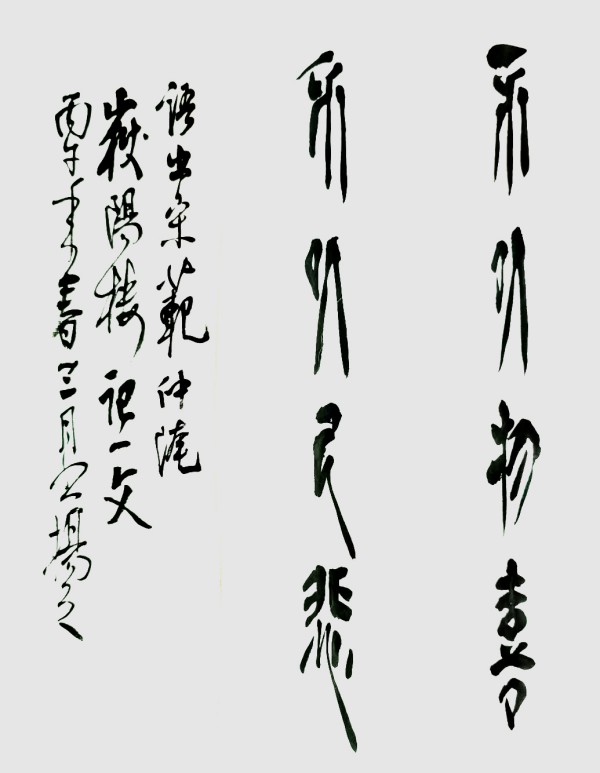 不以物喜
不以己悲
語出宋範仲淹
嶽陽樓記一文
丙午年春三月